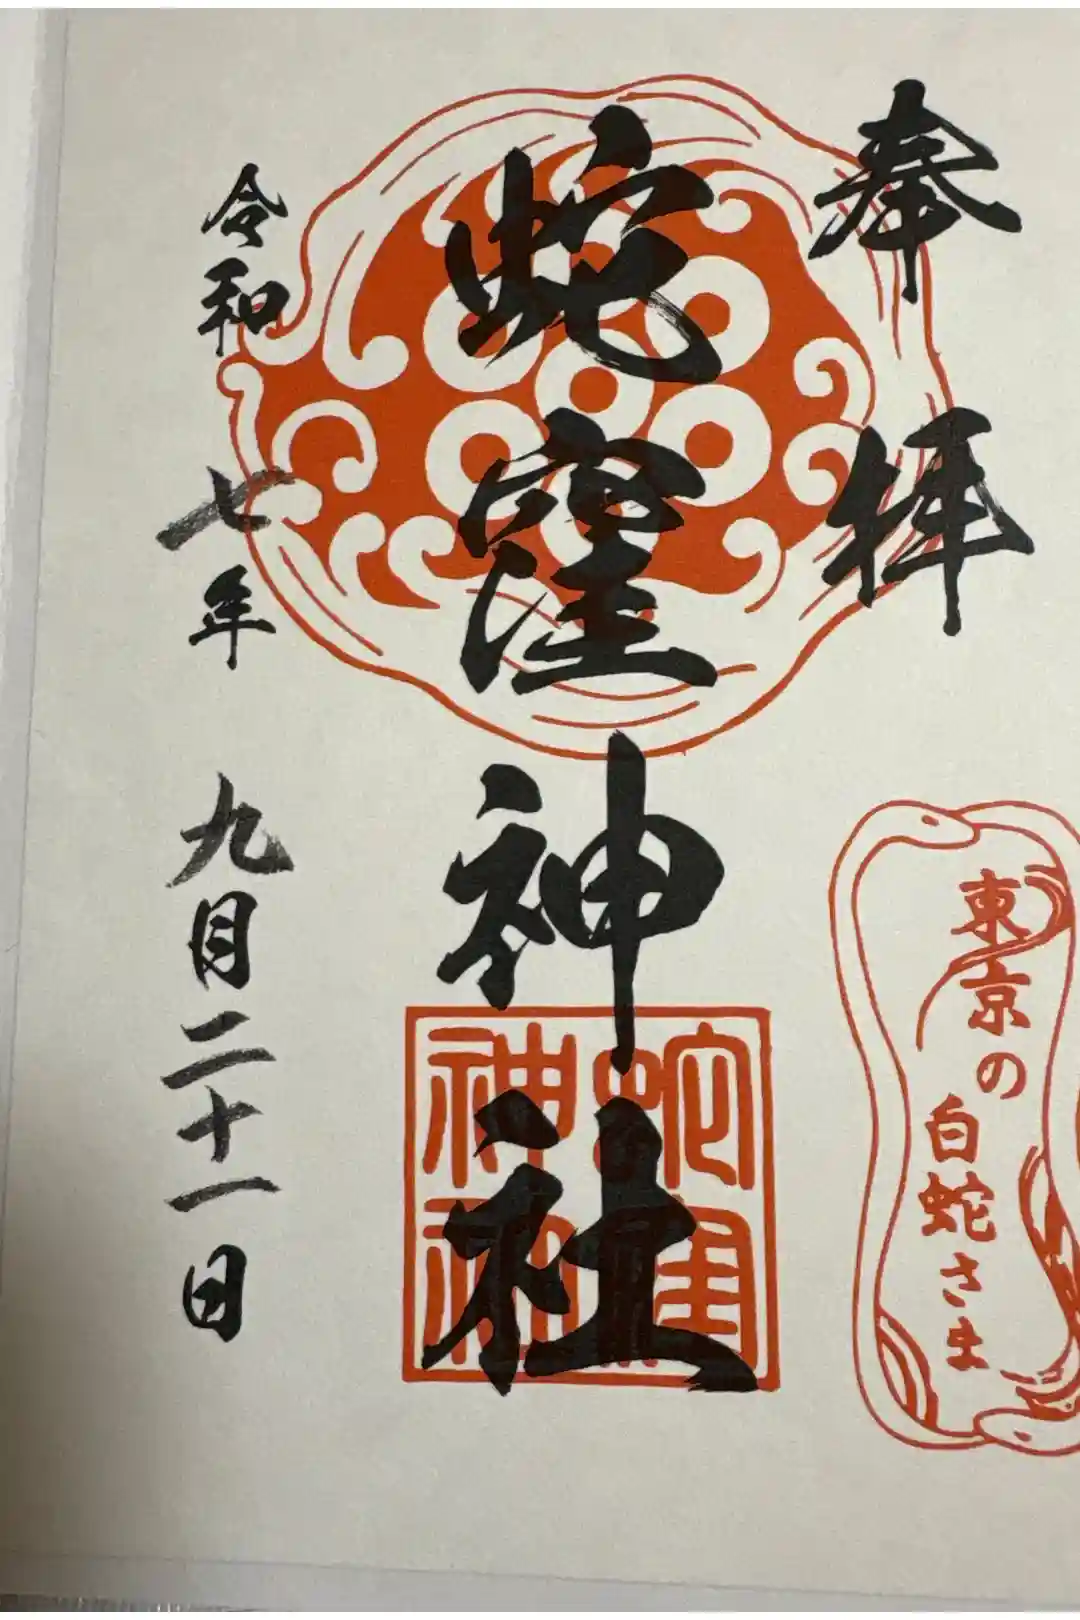 奉拝
東京の
白蛇さま
蛇窪神社
蛇窪
神社
令和七年九月二十一日